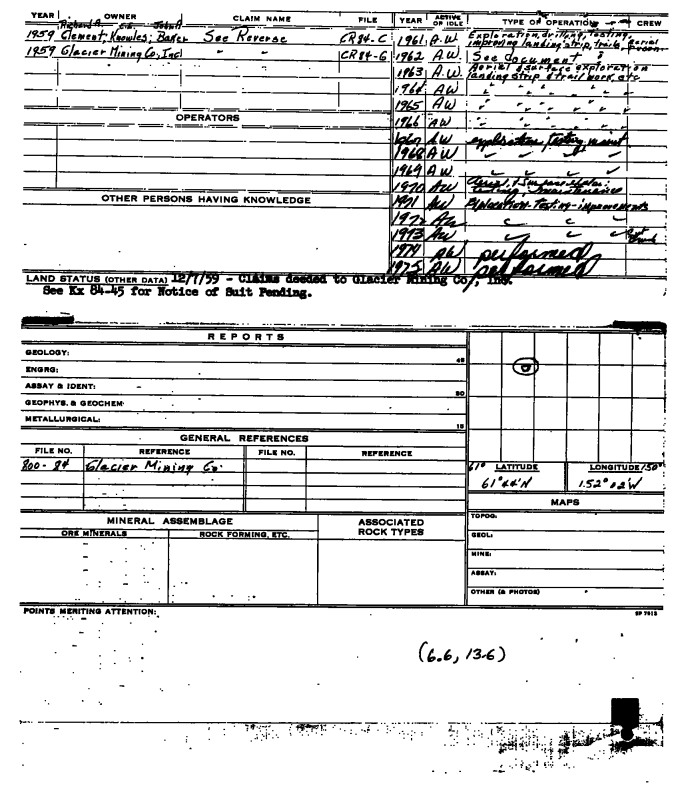 YEAR OWNER CLAIM NAME FILE YEAR ACTIVE OR IDLE TYPE OF OPERATION CREW
Richard A. C.E. John A
1959 Clement; Knowles; Baker See Reverse CR84-C
1959 Glacier Mining Co, Inc " " CR84-G
1961 A.W. Exploration, drilling, testing,
improving landing strip, trails, aerial
1962 A.W. See document
1963 A.W. Aerial & surface exploration
landing strip & trail work, etc
1964 AW " " " "
1965 AW " " " "
1966 AW " " " "
OPERATORS
1967 AW exploration, testing, maint
1968 AW " " "
1969 AW " " "
1970 AW
OTHER PERSONS HAVING KNOWLEDGE
1971 AW Exploration-testing-improvements
1972 AW " " "
1973 AW " " "
1974 AW performed
1975 AW performed
LAND STATUS (OTHER DATA) 12/7/59 - Claims deeded to Glacier Mining Co, Inc.
See Kx 84-45 for Notice of Suit Pending.
REPORTS
GEOLOGY:
45
ENGRG:
ASSAY & IDENT: -
30
GEOPHYS. & GEOCHEM
METALLURGICAL:
15
GENERAL REFERENCES
FILE NO. REFERENCE FILE NO. REFERENCE
800-84 Glacier Mining Co.
61° LATITUDE LONGITUDE 150°
61°44'N 152°02'W
MAPS
MINERAL ASSEMBLAGE ASSOCIATED ROCK TYPES
ORE MINERALS ROCK FORMING, ETC.
TOPOG:
GEOL:
MINE:
ASSAY:
OTHER (& PHOTOS)
POINTS MERITING ATTENTION: SP 7613
(6.6, 13.6)